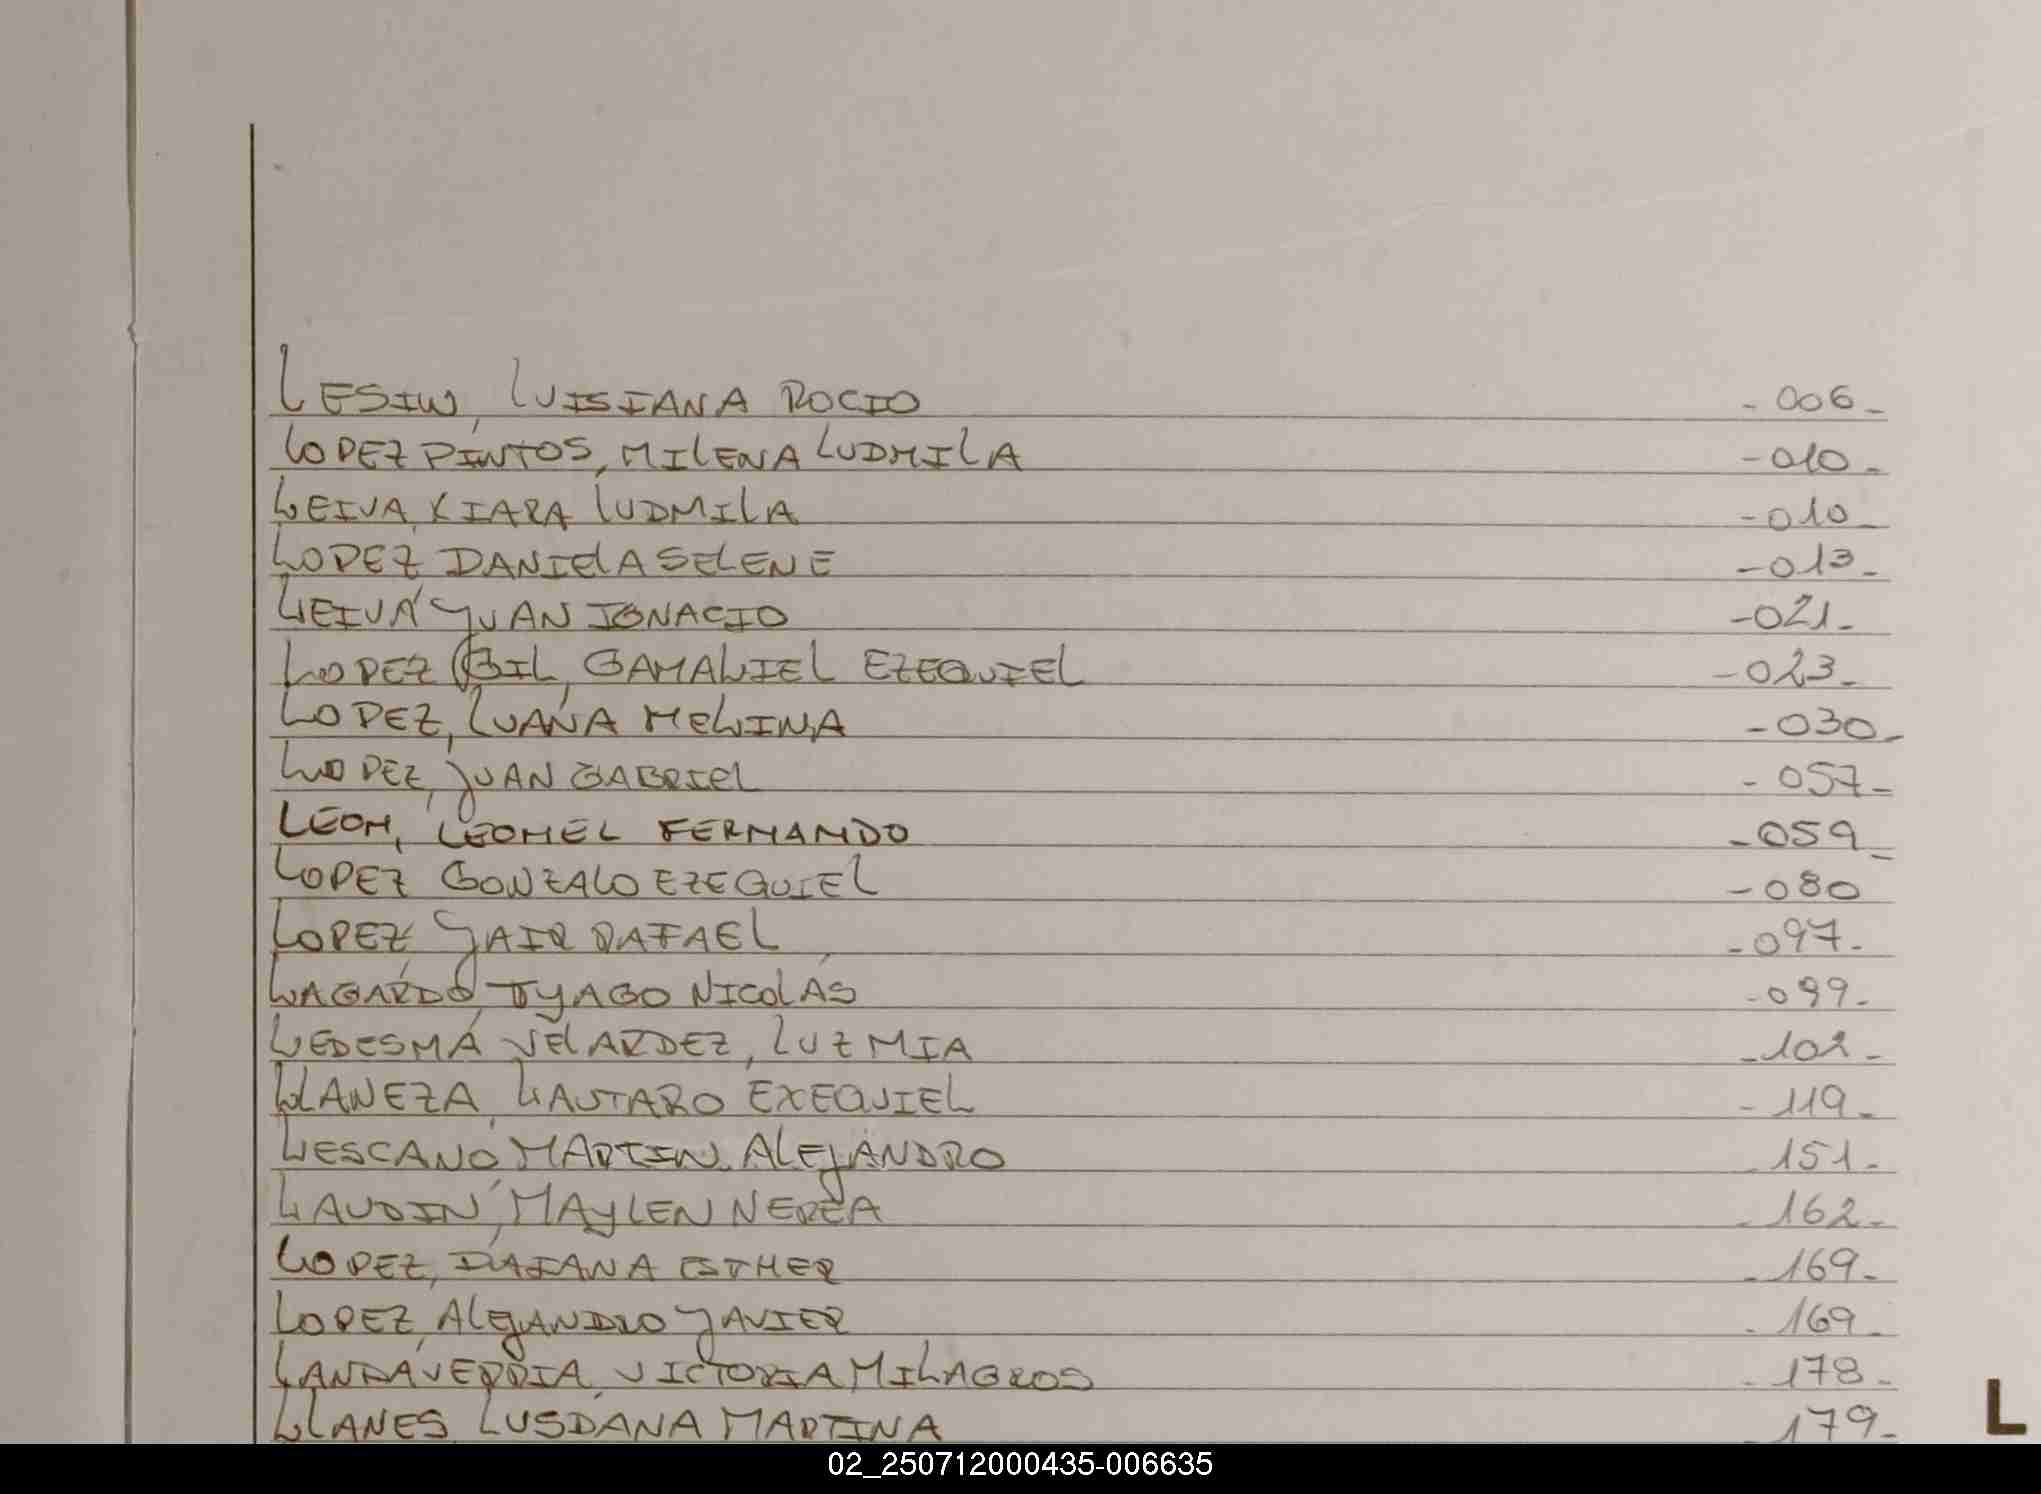 LESIW, LUISIANA ROCIO - 006 -
LOPEZ PINTOS, MILENA LUDMILA - 010 -
LEIVA, KIARA LUDMILA - 010 -
LOPEZ DANIELA SELENE - 013 -
LEIVA JUAN IGNACIO - 021 -
LOPEZ GIL, GAMALIEL EZEQUIEL - 023 -
LOPEZ, LUANA MELINA - 030 -
LOPEZ, JUAN GABRIEL - 057 -
LEON, LEONEL FERNANDO - 059 -
LOPEZ GONZALO EZEQUIEL - 080
LOPEZ JAIR RAFAEL - 097 -
LAGARDO, TYAGO NICOLÁS - 099 -
LEDESMA VELARDEZ, LUZ MIA - 102 -
LLANEZA, LAUTARO EXEQUIEL - 119 -
LESCANO, MARTIN ALEJANDRO - 151 -
LAUDIN, MAYLEN NEREA - 162 -
LOPEZ, DAIANA ESTHER - 169 -
LOPEZ, ALEJANDRO JAVIER - 169 -
VICTORIA MILAGROS - 178 -
LLANES LUSDANA MARTINA - 179 -
L
02_250712000435-006635